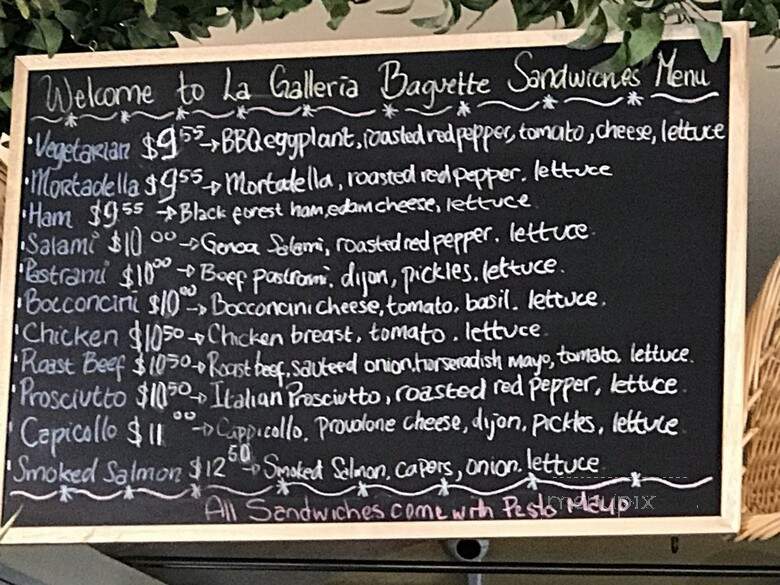 Welcome to La Galleria Baguette Sandwiches Menu
• Vegetarian $9.55 → BBQ eggplant, roasted red pepper, tomato, cheese, lettuce
• Mortadella $9.55 → Mortadella, roasted red pepper. lettuce
• Ham $9.55 → Black forest ham, edam cheese, lettuce
• Salami $10.00 → Genoa Salami, roasted red pepper. lettuce.
• Pastrami $10.00 → Beef pastrami. dijon, pickles. lettuce.
• Bocconcini $10.00 → Bocconcini cheese, tomato. basil. lettuce.
• Chicken $10.50 → Chicken breast, tomato. lettuce.
• Roast Beef $10.50 → Roast beef, sauteed onion, horseradish mayo, tomato. lettuce.
• Prosciutto $10.50 → Italian Prosciutto, roasted red pepper, lettuce.
• Capicollo $11.00 → Cappicollo. Provolone cheese, dijon, pickles, lettuce.
• Smoked Salmon $12.50 → Smoked Salmon, capers, onion. lettuce
All Sandwiches come with Pesto Mayo
menupix